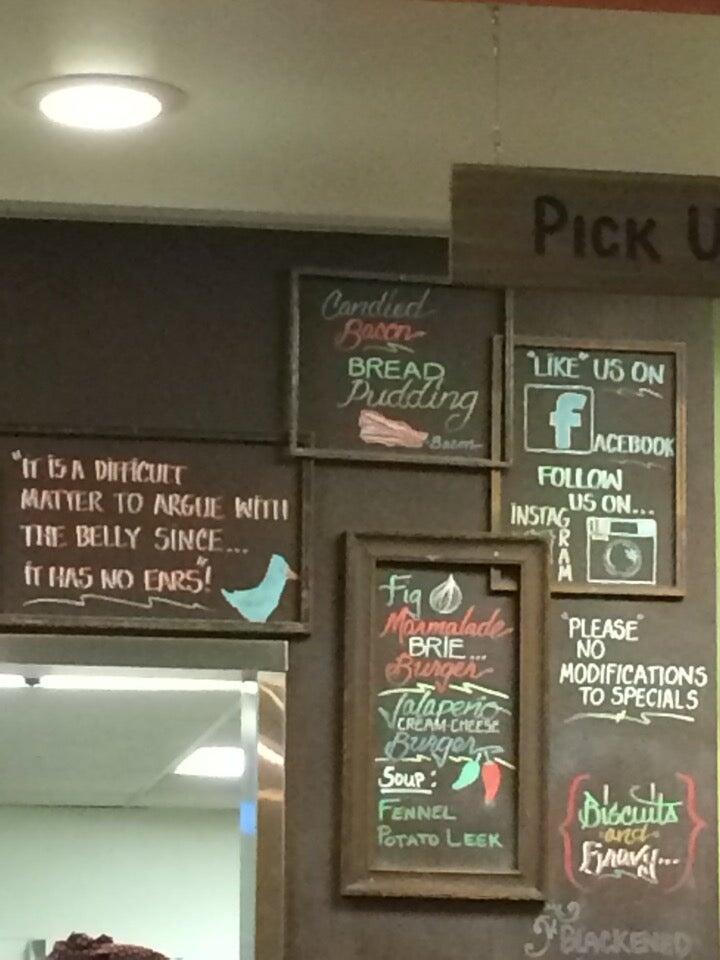 PICK U
Candied
Bacon
BREAD
Pudding
Bacon
"LIKE" US ON
f
ACEBOOK
FOLLOW
US ON...
INSTAGRAM
"IT IS A DIFFICULT
MATTER TO ARGUE WITH
THE BELLY SINCE...
IT HAS NO EARS"!
Fig
Marmalade
BRIE...
Burger
Jalapeño
CREAM CHEESE
Burger
Soup:
FENNEL
POTATO LEEK
"PLEASE"
NO
MODIFICATIONS
TO SPECIALS
Biscuits
and
Gravy...
BLACKENED